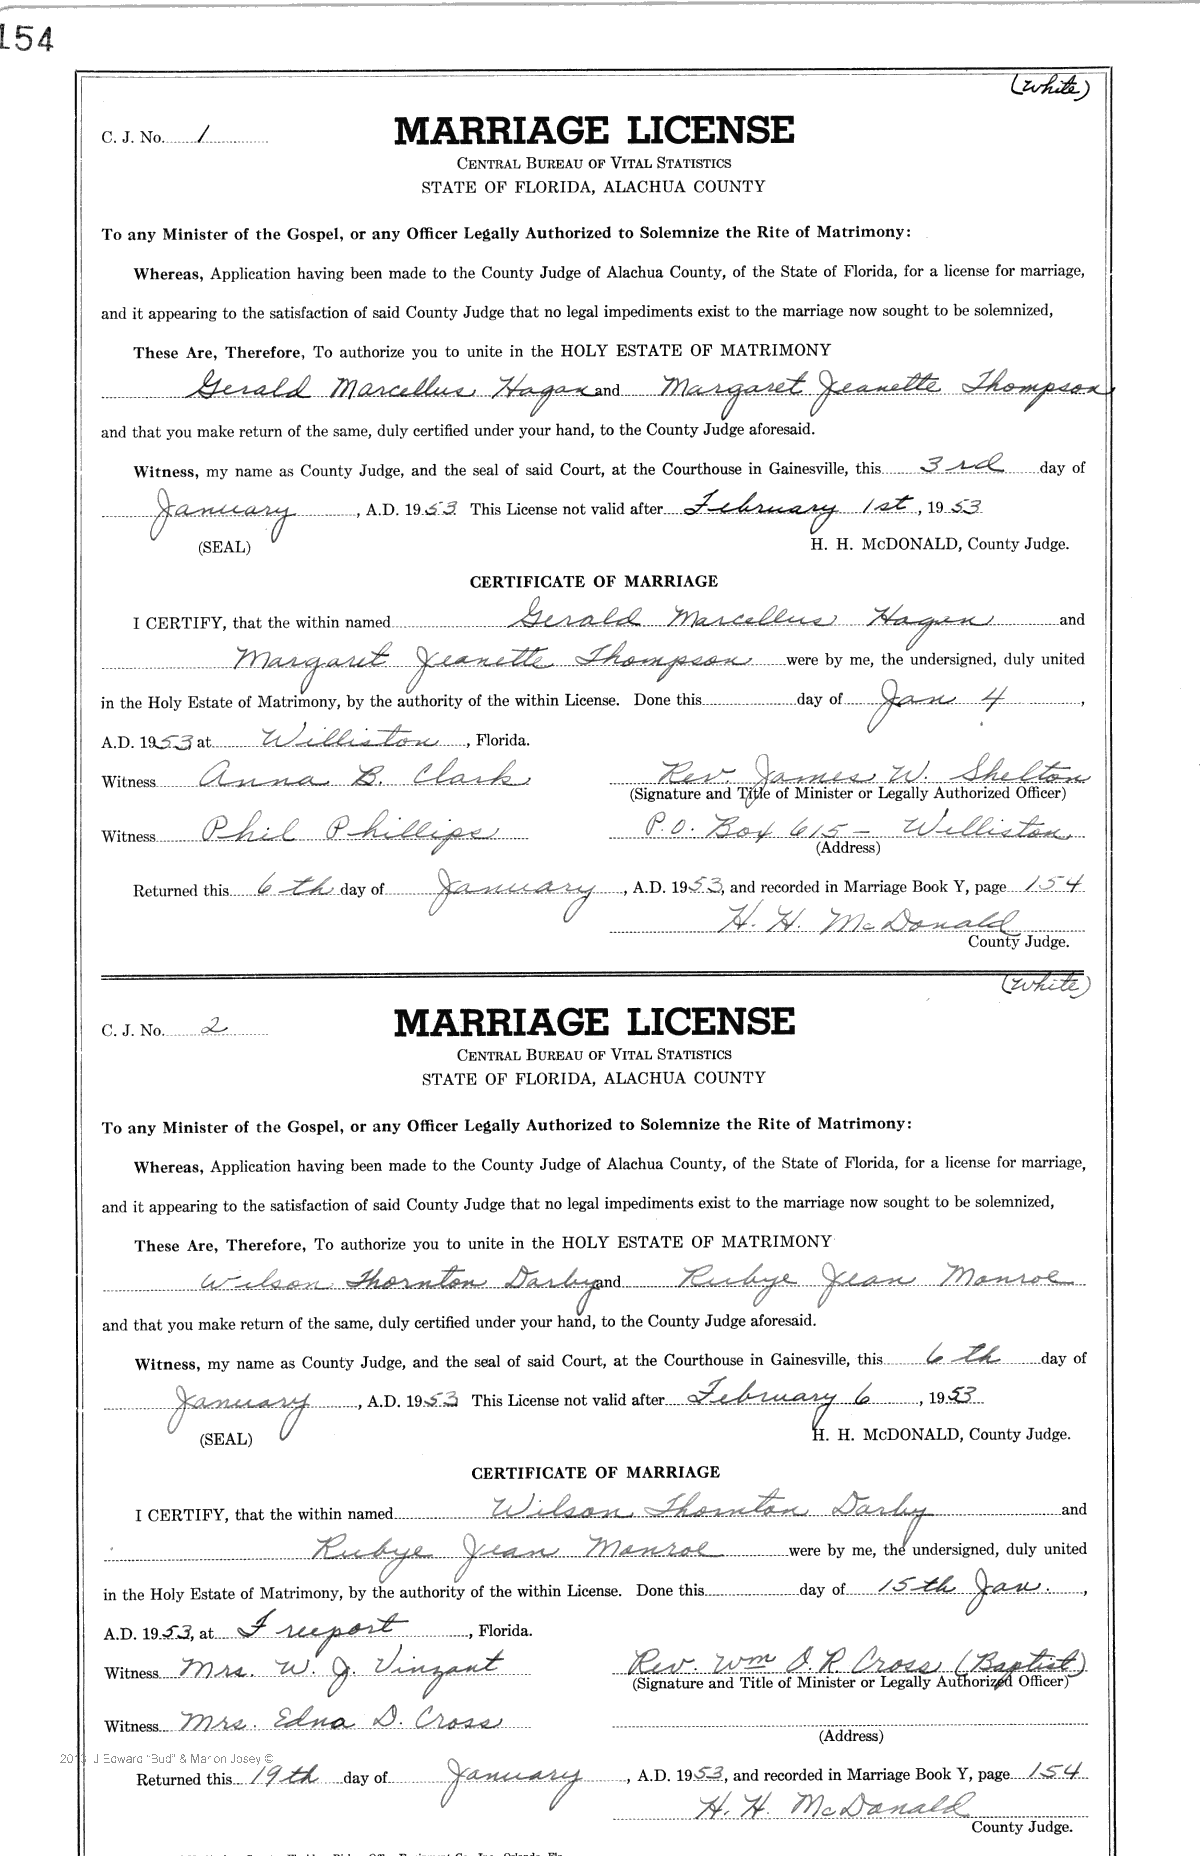 154
(White)
C. J. No. 1
MARRIAGE LICENSE
CENTRAL BUREAU OF VITAL STATISTICS
STATE OF FLORIDA, ALACHUA COUNTY
To any Minister of the Gospel, or any Officer Legally Authorized to Solemnize the Rite of Matrimony:
Whereas, Application having been made to the County Judge of Alachua County, of the State of Florida, for a license for marriage,
and it appearing to the satisfaction of said County Judge that no legal impediments exist to the marriage now sought to be solemnized,
These Are, Therefore, To authorize you to unite in the HOLY ESTATE OF MATRIMONY
Gerald Marcellus Hagan and Margaret Jeanette Thompson
and that you make return of the same, duly certified under your hand, to the County Judge aforesaid.
Witness, my name as County Judge, and the seal of said Court, at the Courthouse in Gainesville, this 3rd day of
January, A.D. 1953 This License not valid after February 1st, 1953
(SEAL) H. H. McDONALD, County Judge.
CERTIFICATE OF MARRIAGE
I CERTIFY, that the within named Gerald Marcellus Hagen and
Margaret Jeanette Thompson were by me, the undersigned, duly united
in the Holy Estate of Matrimony, by the authority of the within License. Done this day of Jan 4,
A.D. 1953 at Williston, Florida.
Witness Anna B. Clark Rev. James W. Shelton
(Signature and Title of Minister or Legally Authorized Officer)
Witness Phil Phillips P.O. Box 615 - Williston
(Address)
Returned this 6th day of January, A.D. 1953, and recorded in Marriage Book Y, page 154
H. H. McDonald
County Judge.
(White)
C. J. No. 2
MARRIAGE LICENSE
CENTRAL BUREAU OF VITAL STATISTICS
STATE OF FLORIDA, ALACHUA COUNTY
To any Minister of the Gospel, or any Officer Legally Authorized to Solemnize the Rite of Matrimony:
Whereas, Application having been made to the County Judge of Alachua County, of the State of Florida, for a license for marriage,
and it appearing to the satisfaction of said County Judge that no legal impediments exist to the marriage now sought to be solemnized,
These Are, Therefore, To authorize you to unite in the HOLY ESTATE OF MATRIMONY
Wilson Thornton Darby and Rubye Jean Monroe
and that you make return of the same, duly certified under your hand, to the County Judge aforesaid.
Witness, my name as County Judge, and the seal of said Court, at the Courthouse in Gainesville, this 6th day of
January, A.D. 1953 This License not valid after February 6, 1953
(SEAL) H. H. McDONALD, County Judge.
CERTIFICATE OF MARRIAGE
I CERTIFY, that the within named Wilson Thornton Darby and
Rubye Jean Monroe were by me, the undersigned, duly united
in the Holy Estate of Matrimony, by the authority of the within License. Done this day of 15th Jan.,
A.D. 1953, at Freeport, Florida.
Witness Mrs. W. J. Vinzant Rev. Wm O. R. Cross (Baptist)
(Signature and Title of Minister or Legally Authorized Officer)
Witness Mrs. Edna D. Cross
(Address)
J Edward "Bud" & Marion Josey ©
Returned this 19th day of January, A.D. 1953, and recorded in Marriage Book Y, page 154
H. H. McDonald
County Judge.